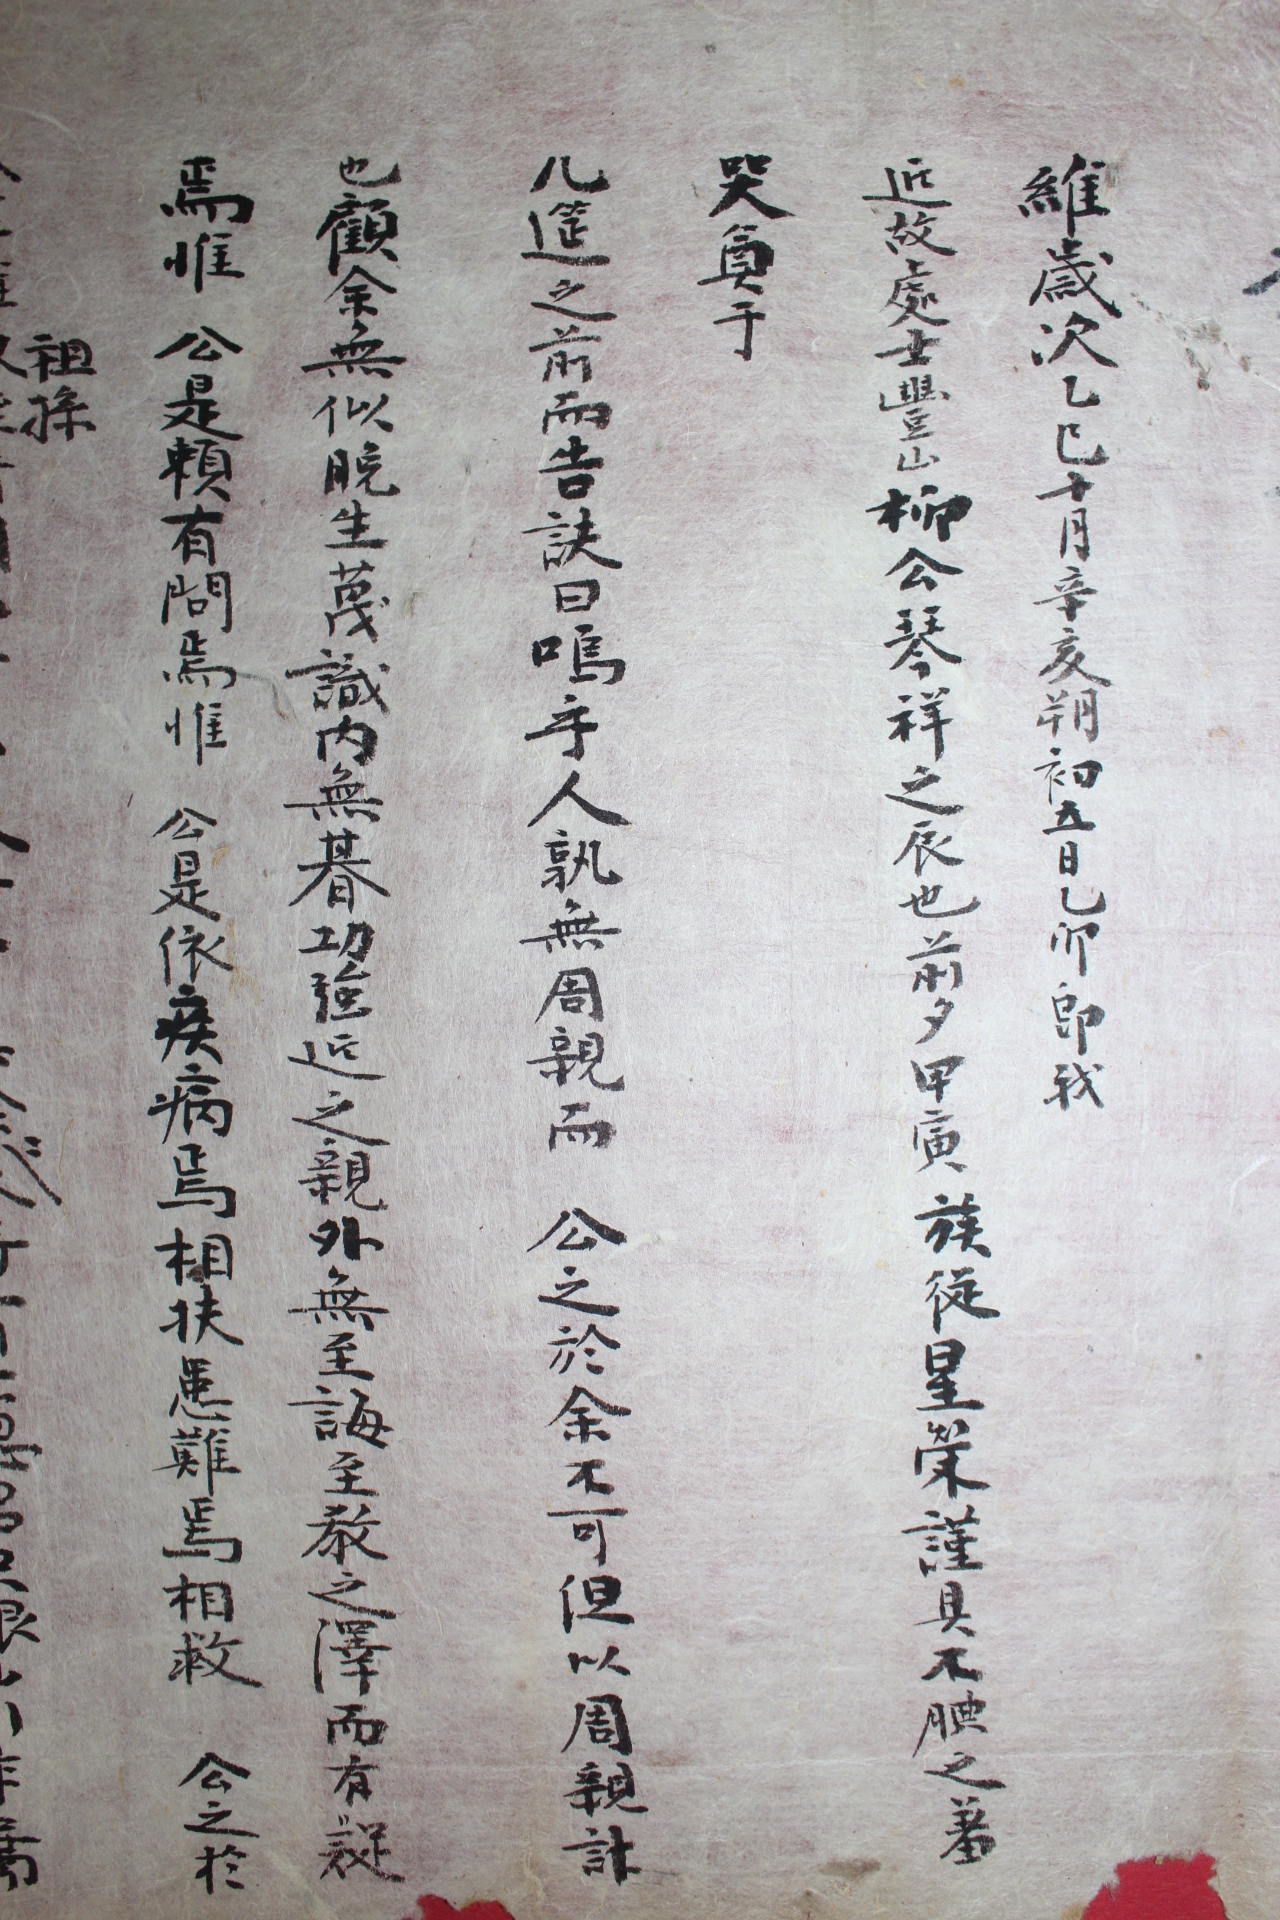 維歲次乙巳十月辛亥朔初五日乙卯即我
近故處士豐山柳公琴祥之辰也前夕甲寅族從星榮謹具不腆之羞
哭奠于
几筵之前而告訣曰嗚乎人孰無周親而 公之於余不可但以周親計
也顧余無似晩生蔑識內無朞功強近之親外無至誨至敎之澤而有疑
焉惟 公是賴有問焉惟 公是依疾病焉相扶患難焉相救 公之於
祖孫